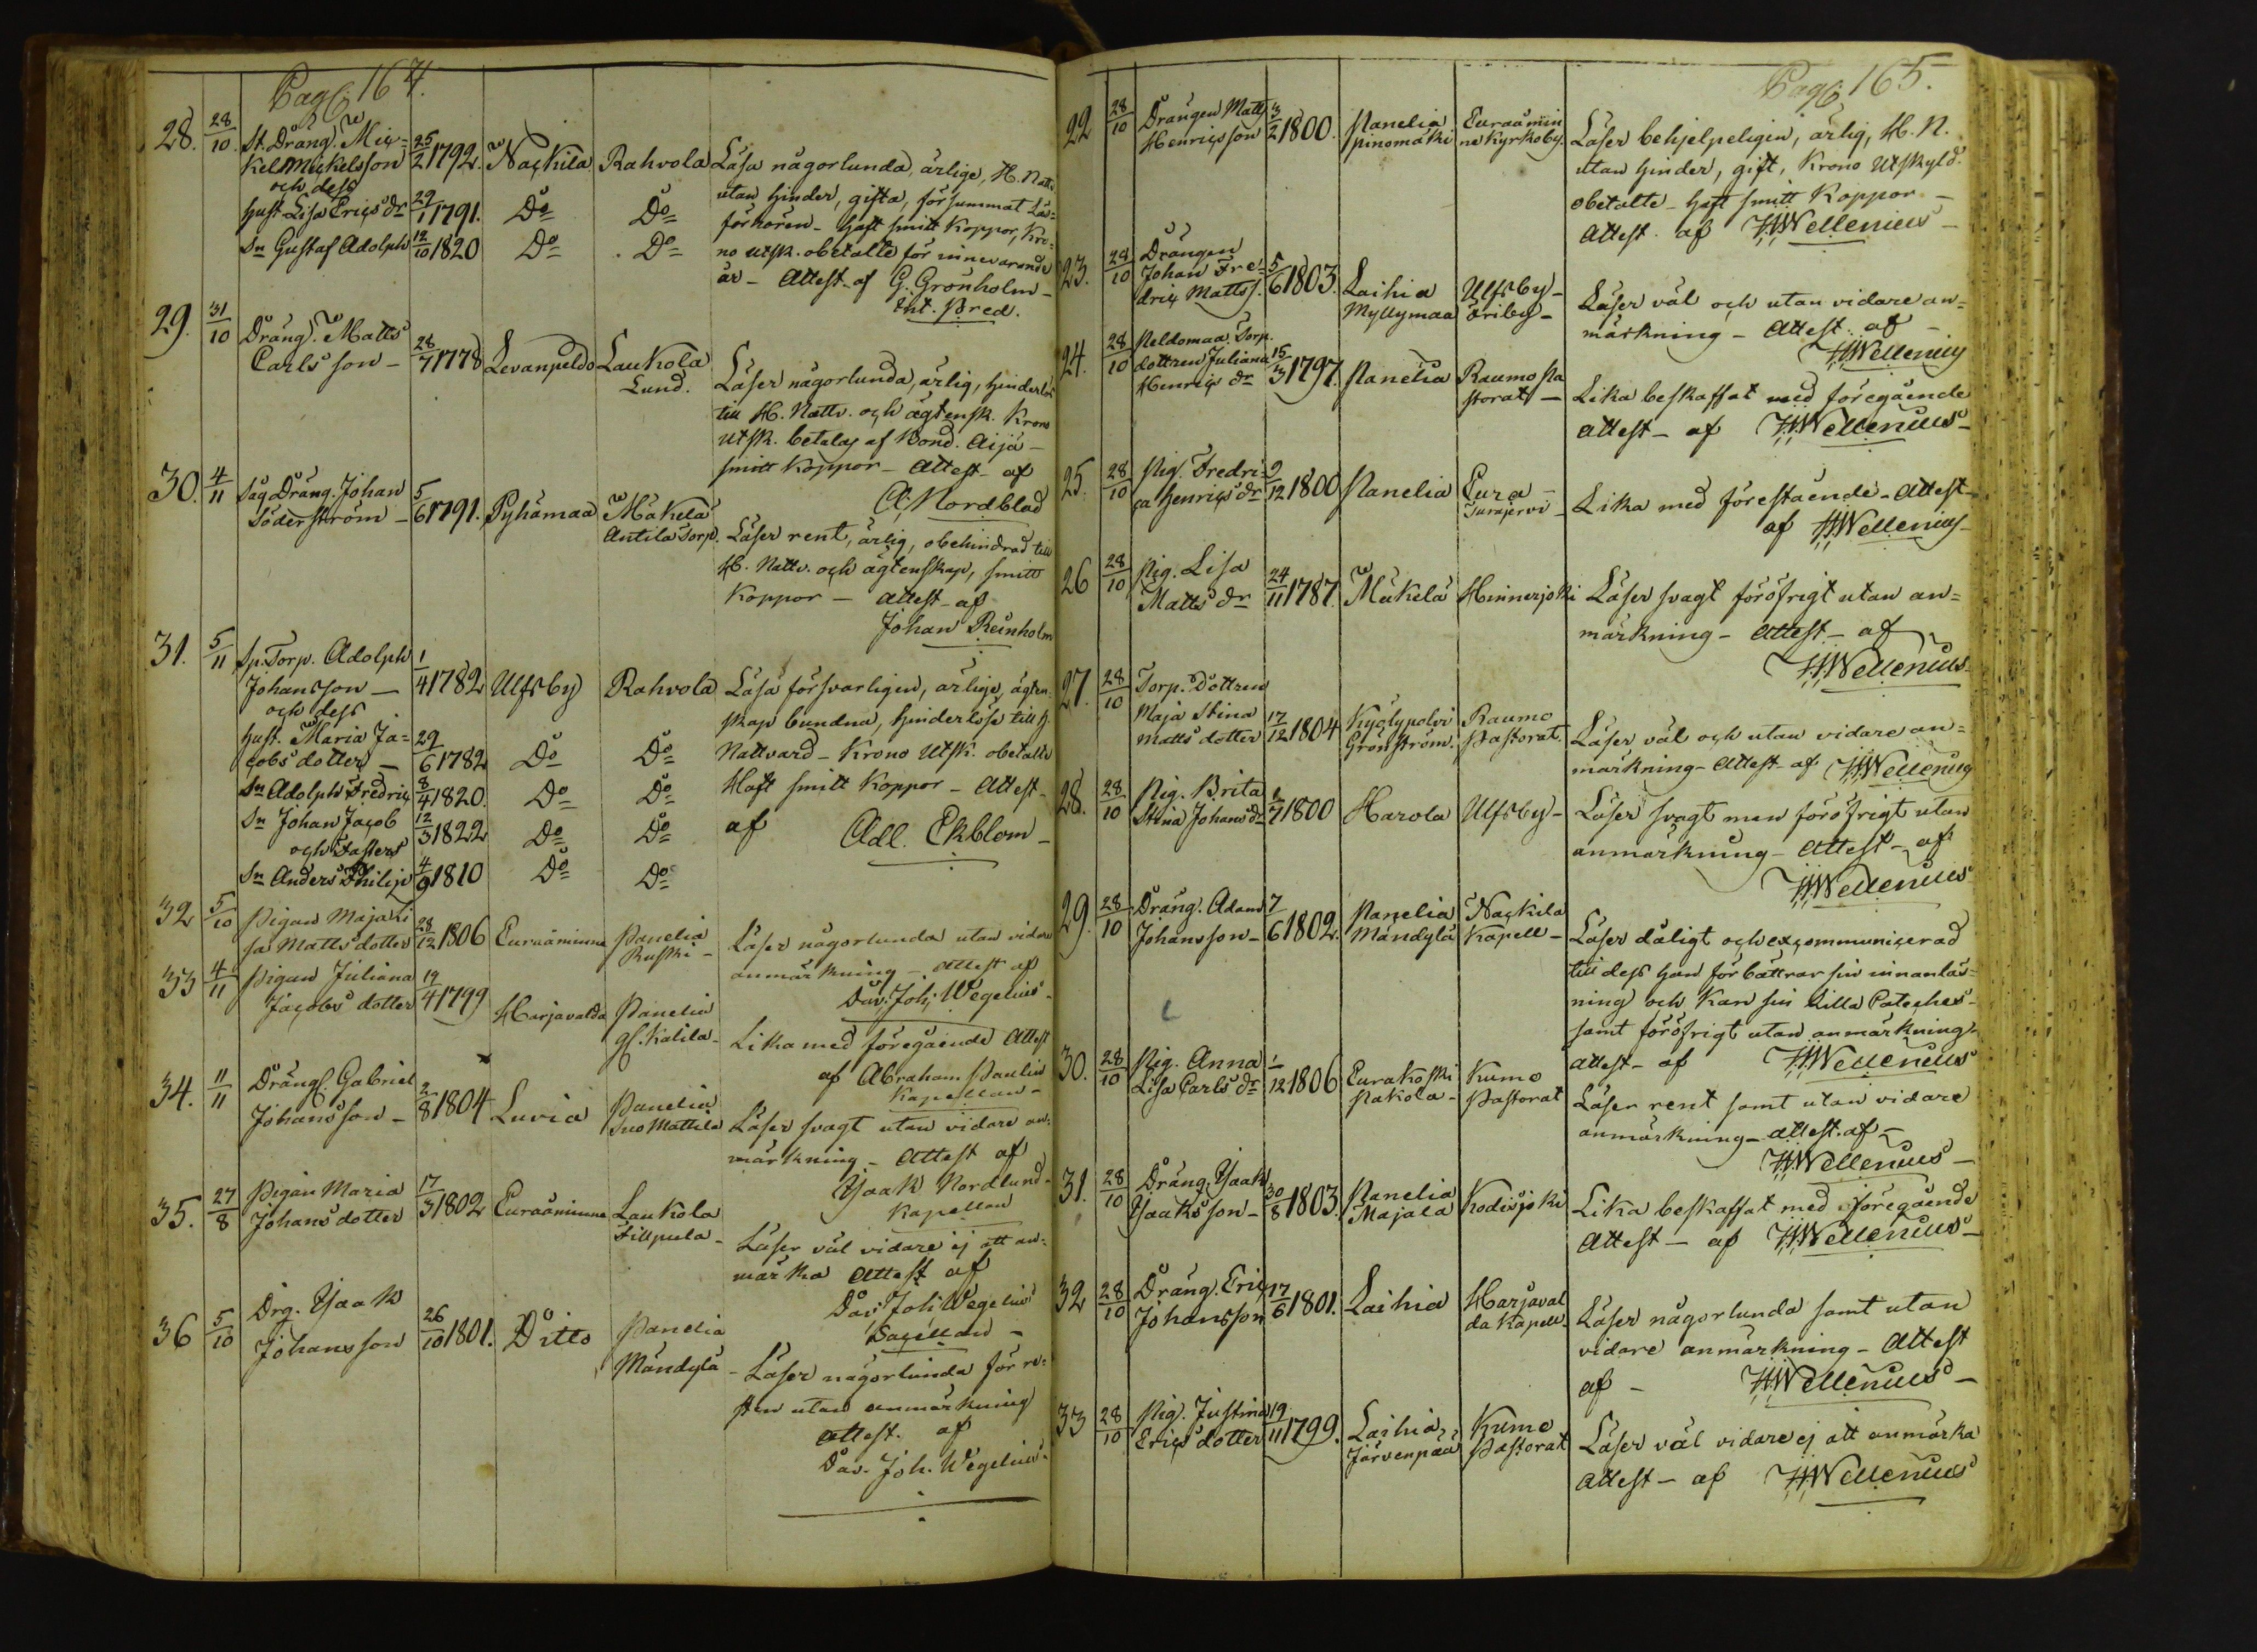 Pag. 164.
28. 28/10. St. Dräng. Mic=
kel Mickelsson 25/2 1792. Nackila Rahvola Läsa någorlunda, ärlige, H. Nattv.
och dess
hust. Lisa Erics dr 29/1 1791. Do Do utan hinder, gifta, försummat Läs=
förhören - haft smitt Koppor, Kro=
Sn Gustaf Adolph 12/10 1820 Do Do no utsk. obetalte för innevarande
år - Attest. af G. Grönholm -
Ext. Pred.
29. 31/10 Dräng. Matts
Carlsson - 28/7 1778 Levanpeldo Laukola
Lund. Läser någorlunda, ärlig, hinderlös
till H. Nattv. och ägtensk. Krono
utsk. betalas af Bond. Aijä -
smitt Koppor - Attest - af
A. Nordblad
30. 4/11 Dräng. Johan
Söderström - 5/6 1791. Pyhämaa Mäkelä
Antila Torp. Läser rent, ärlig, obehindrad till
H. Nattv. och ägtenskap, smitt
Koppor - attest - af
Johan Reinholm
31. 5/11 Sp. Torp. Adolph
Johansson - 1/4 1782 Ulfsby Rahvola Läsa försvarligen, ärlige, ägten=
och dess skap bundna, hinderlöse till H.
hust. Maria Ja=
cobs dotter - 29/6 1782 Do Do Nattvard - Krono Utsk. obetalte
Sn Adolph Fredric 8/4 1820. Do Do Haft smitt Koppor - Attest -
Sn Johan Jacob 12/3 1822 Do Do af Adl. Ekblom -
och
Sn Anders Philip 4/9 1810 Do Do
32 5/10 Pigan Maja Li
sa Matts dotter 28/12 1806 Euraåminne Panelia
Ruski - Läser någorlunda utan vidare
anmärkning - Attest af
Dav. Joh. Wegelius -
33 4/11 Pigan Juliana
Jacobs dotter 19/4 1799 Harjavalda Panelia
gl. Katila - Lika med föregående Attest
af Abraham Paulin
Kapellan -
34. 11/11 Dräng. Gabriel
Johansson - 2/8 1804 Luvia Panelia
Iso Mattila Läser svagt utan vidare an=
märkning - Attest af
Isaak Nordlund -
Kapellan
35. 27/8 Pigan Maria
Johans dotter 17/3 1802 Euraåminne Laukola
Fillpula - Läser väl vidare ej att an=
märka Attest af
Dav. Joh. Wegelius
Sacellan -
36 5/10 Drg. Isaak
Johansson 26/10 1801. Ditto Panelia
Mändylä - Läser någorlunda för re=
sten utan anmärkning
attest. af
Dav. Joh. Wegelius.
Pag. 165.
22 28/10 Drängen Matts
Henricsson 3/2 1800. Panelia
Spinomäki Euraåmin
ne Kyrkoby. Läser behjelpeligen, ärlig, H. N.
utan hinder, gift, Krono Utskyld.
obetalte - haft smitt Koppor -
Attest. af HWellenius -
23. 28/10 Drängen
Johan Fre=
dric Matts s. 5/6 1803. Laihia
Myllymaa Ulfsby -
Läser väl och utan vidare an=
märkning - Attest. af -
HWellenius
24. 28/10 Peldomaa Torp.
dottren Juliana
Henrics dr 15/3 1797. Panelia Raumo Pa
storat - Lika beskaffat med föregående
attest - af HWellenius -
25. 28/10 Pig. Fredri=
ca Henrics dr 9/12 1800 Panelia Eura -
Turajervi - Lika med förestående - Attest -
af HWellenius -
26 28/10 Pig. Lisa
Matts dr 24/11 1787. Mäkelä Hinnerjoki Läser svagt föröfrigt utan an=
märkning - Attest - af
HWellenius -
27. 28/10 Torp. Dottren
Maja Stina
Matts dotter 17/12 1804 Kyölypolvi
Grönström. Raumo
Pastorat. Läser väl och utan vidare an=
märkning - Attest - af HWellenius
28. 28/10 Pig. Brita
Stina Johans dr 1/7 1800 Harola Ulfsby - Läser svagt men föröfrigt utan
anmärkning - Attest - af
HWellenius
29. 28/10 Dräng. Adam
Johansson - 7/6 1802. Panelia
Mändylä Nackila
Kapell - Läser dåligt och excommunicerad
till dess han förbättrar sin innanläs=
ning och Kan sin Lilla Cateches -
samt föröfrigt utan anmärkning -
attest - af HWellenius
30. 28/10 Pig. Anna
Lisa Carls dr 1/12 1806 Eurakoski
Pakola - Kumo
Pastorat Läser rent samt utan vidare
anmärkning - attest. af -
HWellenius -
31. 28/10 Dräng. Isaak
Isaksson - 30/8 1803. Panelia
Majala Kodisjoki Lika beskaffat med föregående
Attest - af HWellenius -
32 28/10 Dräng. Eric
Johansson 17/6 1801. Laihia Harjaval
da Kapell. Läser någorlunda samt utan
vidare anmärkning - Attest
af - HWellenius -
33 28/10 Pig. Justina
Erics dotter 19/11 1799. Laihia
Järvenpää Kumo
Pastorat Läser väl vidare ej att anmärka
attest - af HWellenius